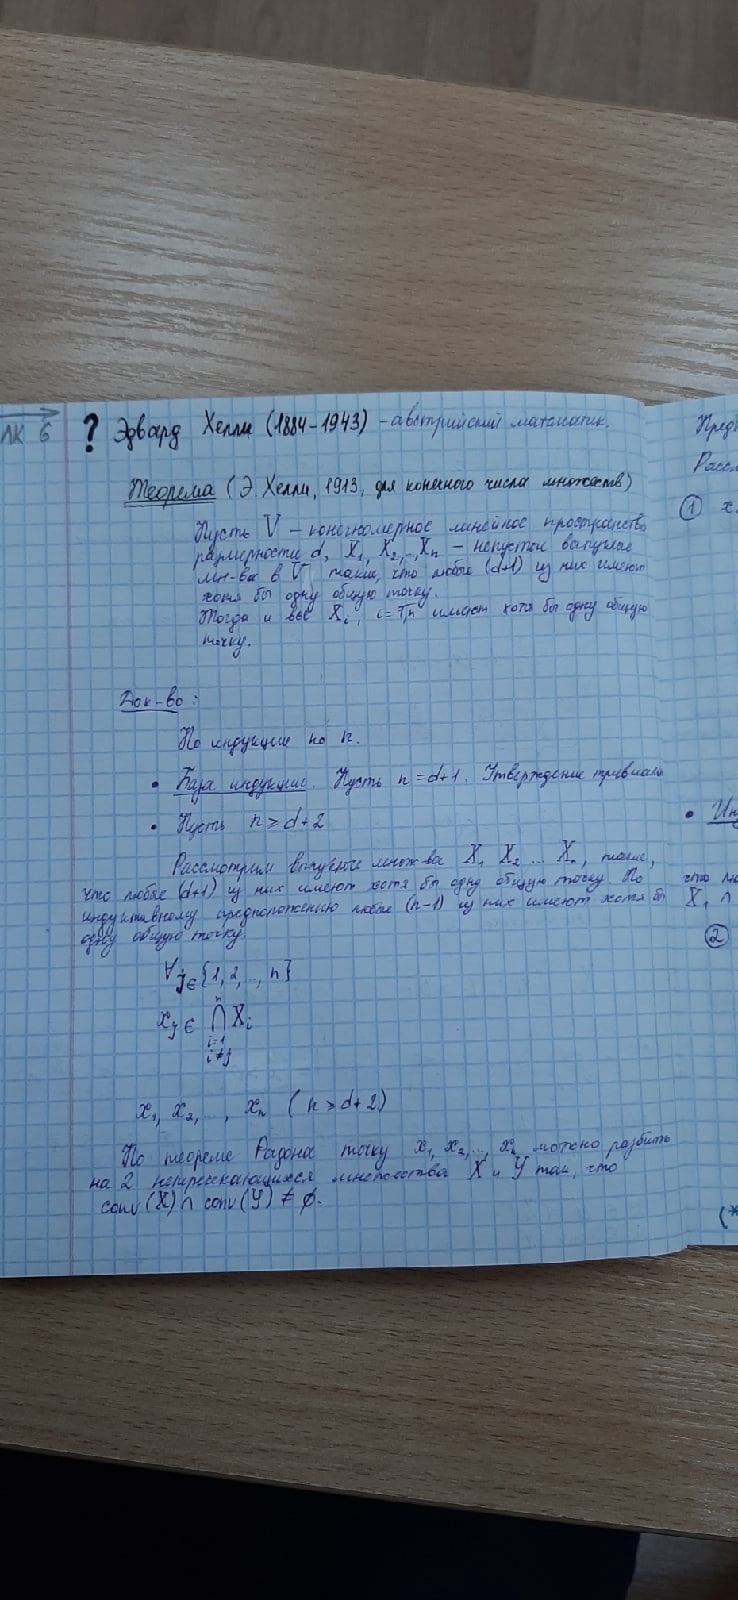 ЛК 6
? Эдвард Хелли (1884-1943) - австрийский математик.
Теорема (Э. Хелли, 1913, для конечного числа множеств)
Пусть V - конечномерное линейное пространство
размерности d, X₁, X₂,.., Xₙ - непустые выпуклые
мн-ва в V, такие, что любые (d+1) из них имеют
хотя бы одну общую точку.
Тогда и все Xᵢ, i=1,n имеют хотя бы одну общую
точку.
Док-во:
По индукции по n.
• База индукции. Пусть n=d+1. Утверждение тривиально
• Пусть n ≥ d+2
Рассмотрим выпуклые множва X₁ X₂ ... Xₙ, такие,
что любые (d+1) из них имеют хотя бы одну общую точку. По
индуктивному предположению любые (n-1) из них имеют хотя бы
одну общую точку.
∀ j ∈ {1, 2, .., n}
xⱼ ∈ ⋂ Xᵢ
n
i=1
i≠j
x₁, x₂, .., xₙ (n ≥ d+2)
По теореме Радона точку x₁, x₂, .., xₙ можно разбить
на 2 непересекающихся множества X и Y так, что
conv(X) ∩ conv(Y) ≠ ∅.
①
•
X₁ ∩
②
(*